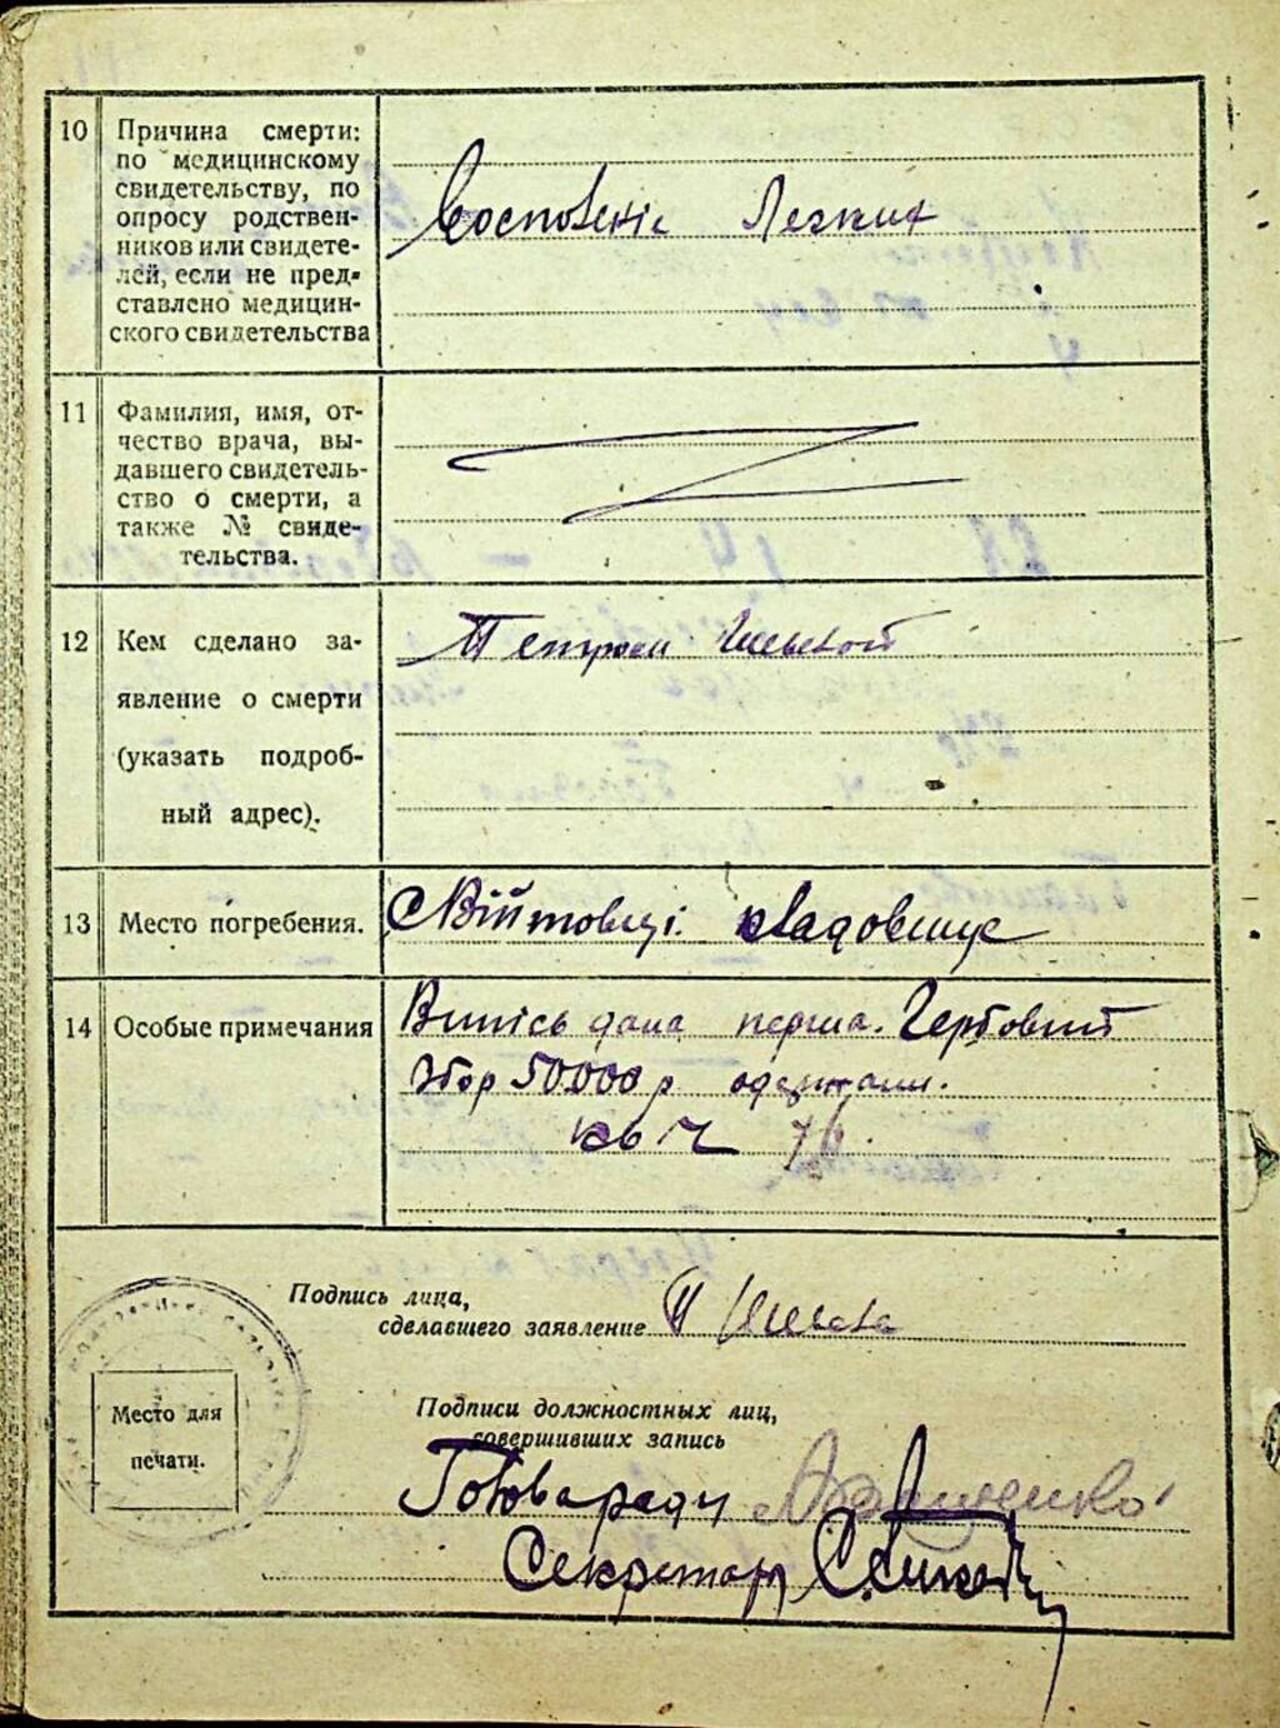 10 Причина смерти:
по медицинскому
свидетельству, по
опросу родствен-
ников или свидете-
лей, если не пред-
ставлено медицин-
ского свидетельства
Восполеніє Легких
11 Фамилия, имя, от-
чество врача, вы-
давшего свидетель-
ство о смерти, а
также № свиде-
тельства.
12 Кем сделано за-
явление о смерти
(указать подроб-
ный адрес).
13 Место погребения.
кладовище
14 Особые примечания
Випісь дана перша. Гербовий
збор 50000 р одержали.
кв Ч
Подпись лица,
сделавшего заявление
Подписи должностных лиц,
совершивших запись
Голова ради
Секретарь
Место для
печати.